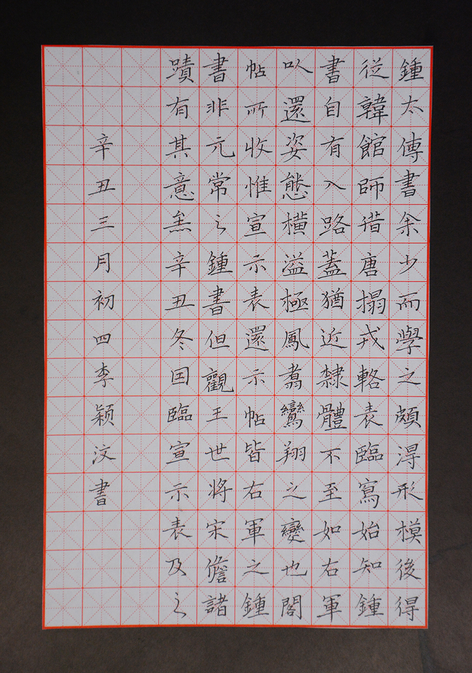 鍾太傅書余少而學之頗淂形模後得
從韓館師借唐搨戎輅表臨寫始知鍾
書自有入路蓋猶近隸體不至如右軍
以還姿態橫溢極鳳翥鸞翔之變也閣
帖所收惟宣示表還示帖皆右軍之鍾
書非元常之鍾書但觀王世將宋儋諸
蹟有其意矣辛丑冬因臨宣示表及之
辛丑三月初四李颖汶書